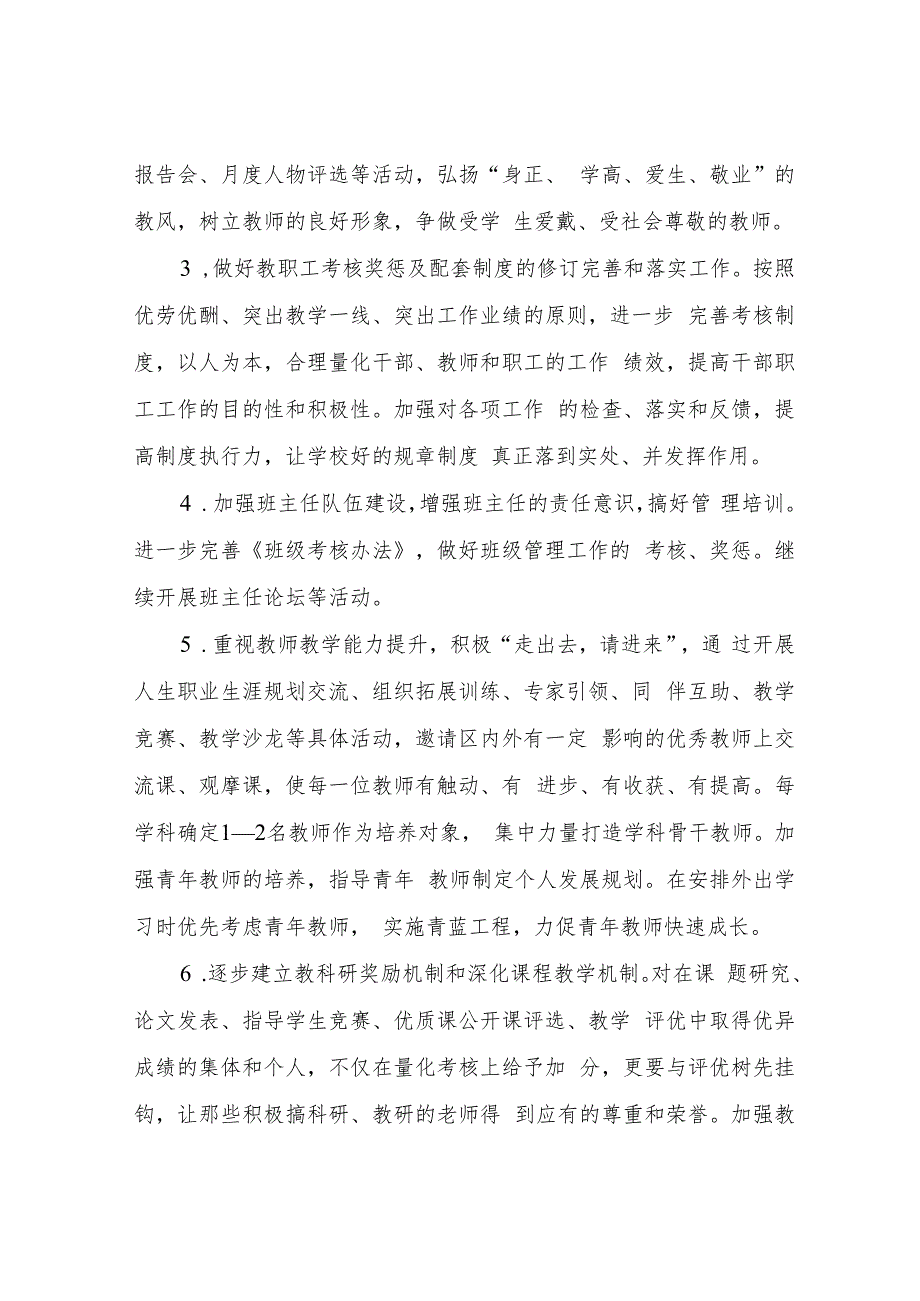 报告会、月度人物评选等活动，弘扬“身正、 学高、爱生、敬业”的
教风，树立教师的良好形象，争做受学 生爱戴、受社会尊敬的教师。
3 ,做好教职工考核奖惩及配套制度的修订完善和落实工作。按照
优劳优酬、突出教学一线、突出工作业绩的原则，进一步 完善考核制
度，以人为本，合理量化干部、教师和职工的工作 绩效，提高干部职
工工作的目的性和积极性。加强对各项工作 的检查、落实和反馈，提
高制度执行力，让学校好的规章制度 真正落到实处、并发挥作用。
4 .加强班主任队伍建设,增强班主任的责任意识,搞好管 理培训。
进一步完善《班级考核办法》，做好班级管理工作的 考核、奖惩。继
续开展班主任论坛等活动。
5 .重视教师教学能力提升，积极“走出去，请进来”，通 过开展
人生职业生涯规划交流、组织拓展训练、专家引领、同 伴互助、教学
竞赛、教学沙龙等具体活动，邀请区内外有一定 影响的优秀教师上交
流课、观摩课，使每一位教师有触动、有 进步、有收获、有提高。每
学科确定1—2名教师作为培养对象， 集中力量打造学科骨干教师。加
强青年教师的培养，指导青年 教师制定个人发展规划。在安排外出学
习时优先考虑青年教师， 实施青蓝工程，力促青年教师快速成长。
6 .逐步建立教科研奖励机制和深化课程教学机制。对在课 题研究、
论文发表、指导学生竞赛、优质课公开课评选、教学 评优中取得优异
成绩的集体和个人，不仅在量化考核上给予加 分，更要与评优树先挂
钩，让那些积极搞科研、教研的老师得 到应有的尊重和荣誉。加强教